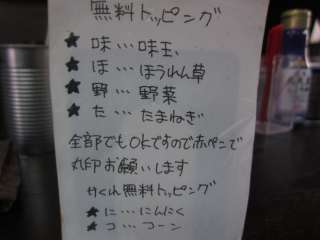 無料トッピング
★ 味…味玉
★ ほ…ほうれん草
★ 野…野菜
★ た…たまねぎ
全部でもOKですので赤ペンで
丸印お願いします
かくれ無料トッピング
★ に…にんにく
★ コ…コーン